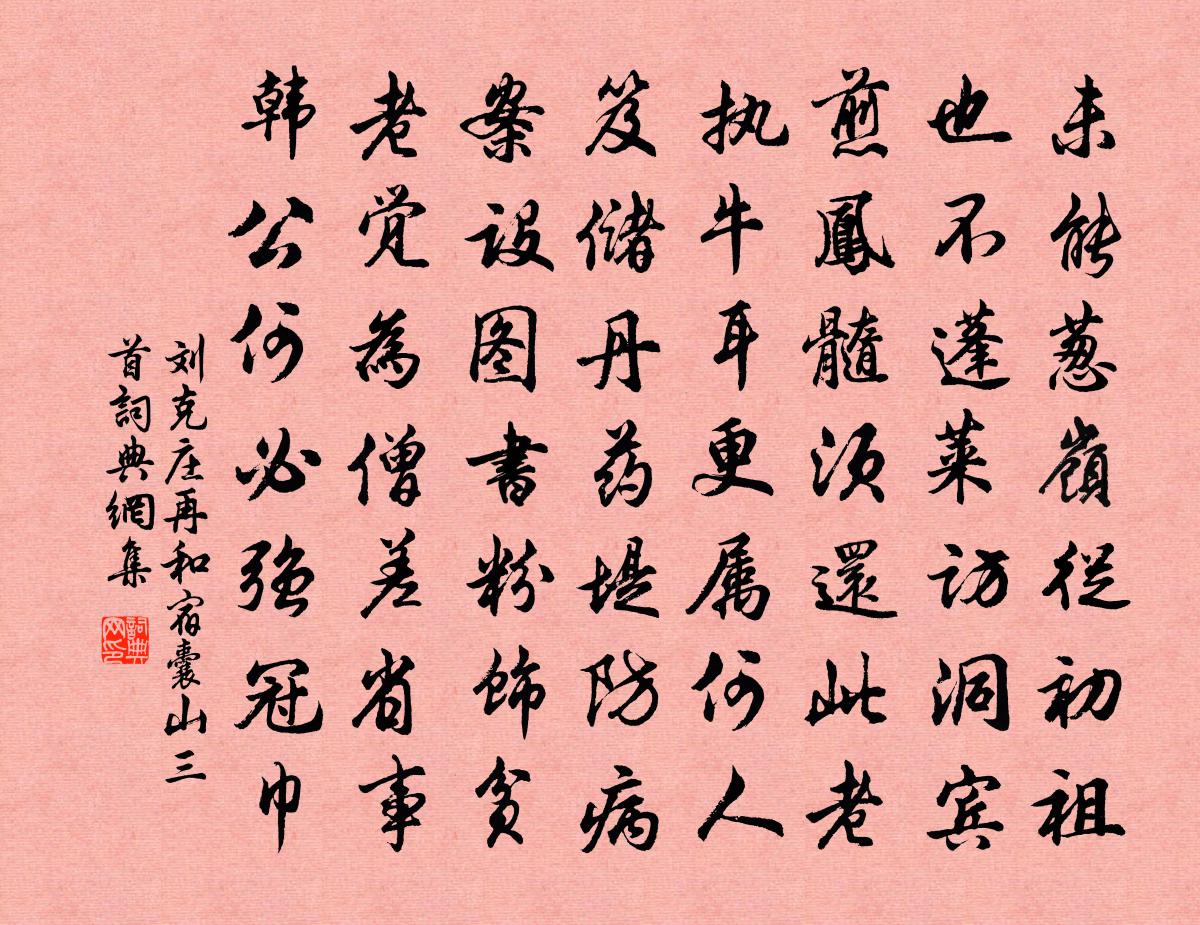 未能葱嶺從初祖
也不蓬莱访洞宾
煎鳳髓须還此老
执牛耳更属何人
笈儲丹药堤防病
案设图書粉饰贫
老觉為僧差省事
韩公何必强冠巾
刘克庄再和宿囊山三
首詞典網集
詞典网印